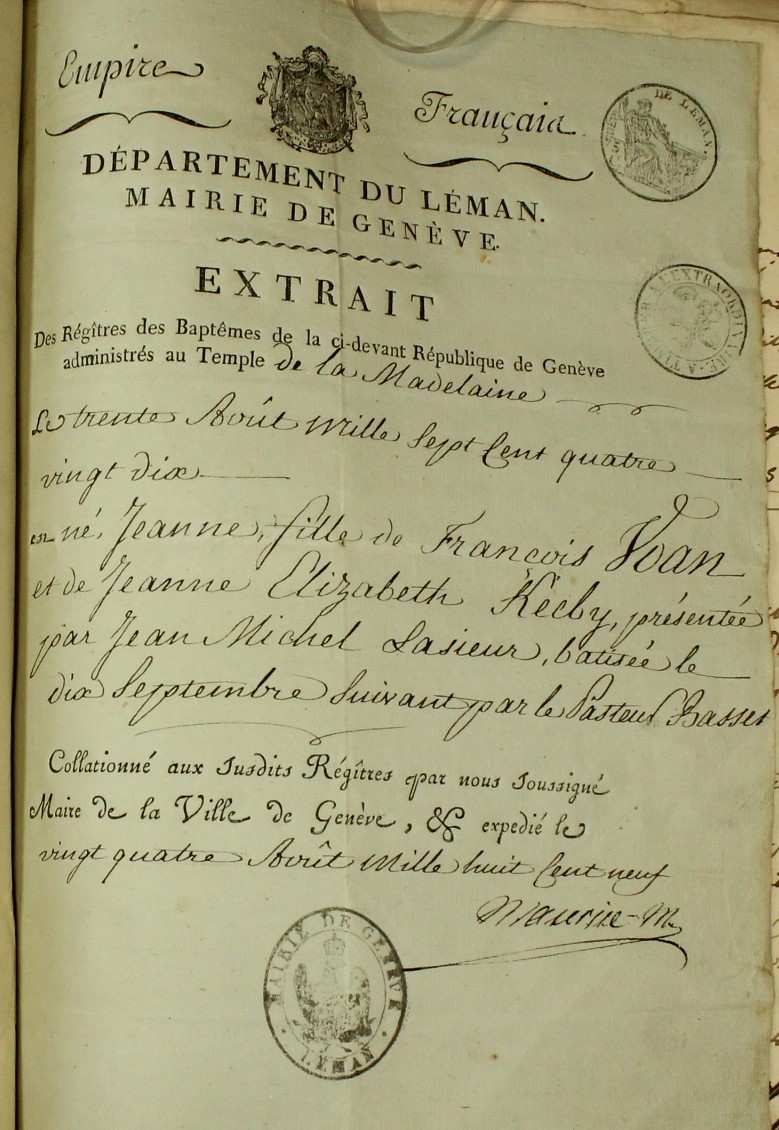 Empire Français
DÉPARTEMENT DU LÉMAN.
MAIRIE DE GENÈVE.
EXTRAIT
Des Régîtres des Baptêmes de la ci-devant République de Genève
administrés au Temple de la Madelaine
Le trente Août mille Sept Cent quatre
vingt dix
est né, Jeanne, fille de François Voan
et de Jeanne Elizabeth présentée
par Jean Michel Lasieur, batisée le
dix Septembre Suivant par le Pasteur Basset
Collationné aux susdits Régîtres par nous soussigné
Maire de la Ville de Genève, & expedié le
vingt quatre Août mille huit Cent neuf
Maurice-M.
DE LÉMAN.
A TIMBRER A L'EXTRAORDINAIRE
MAIRIE DE GENEVE
LEMAN